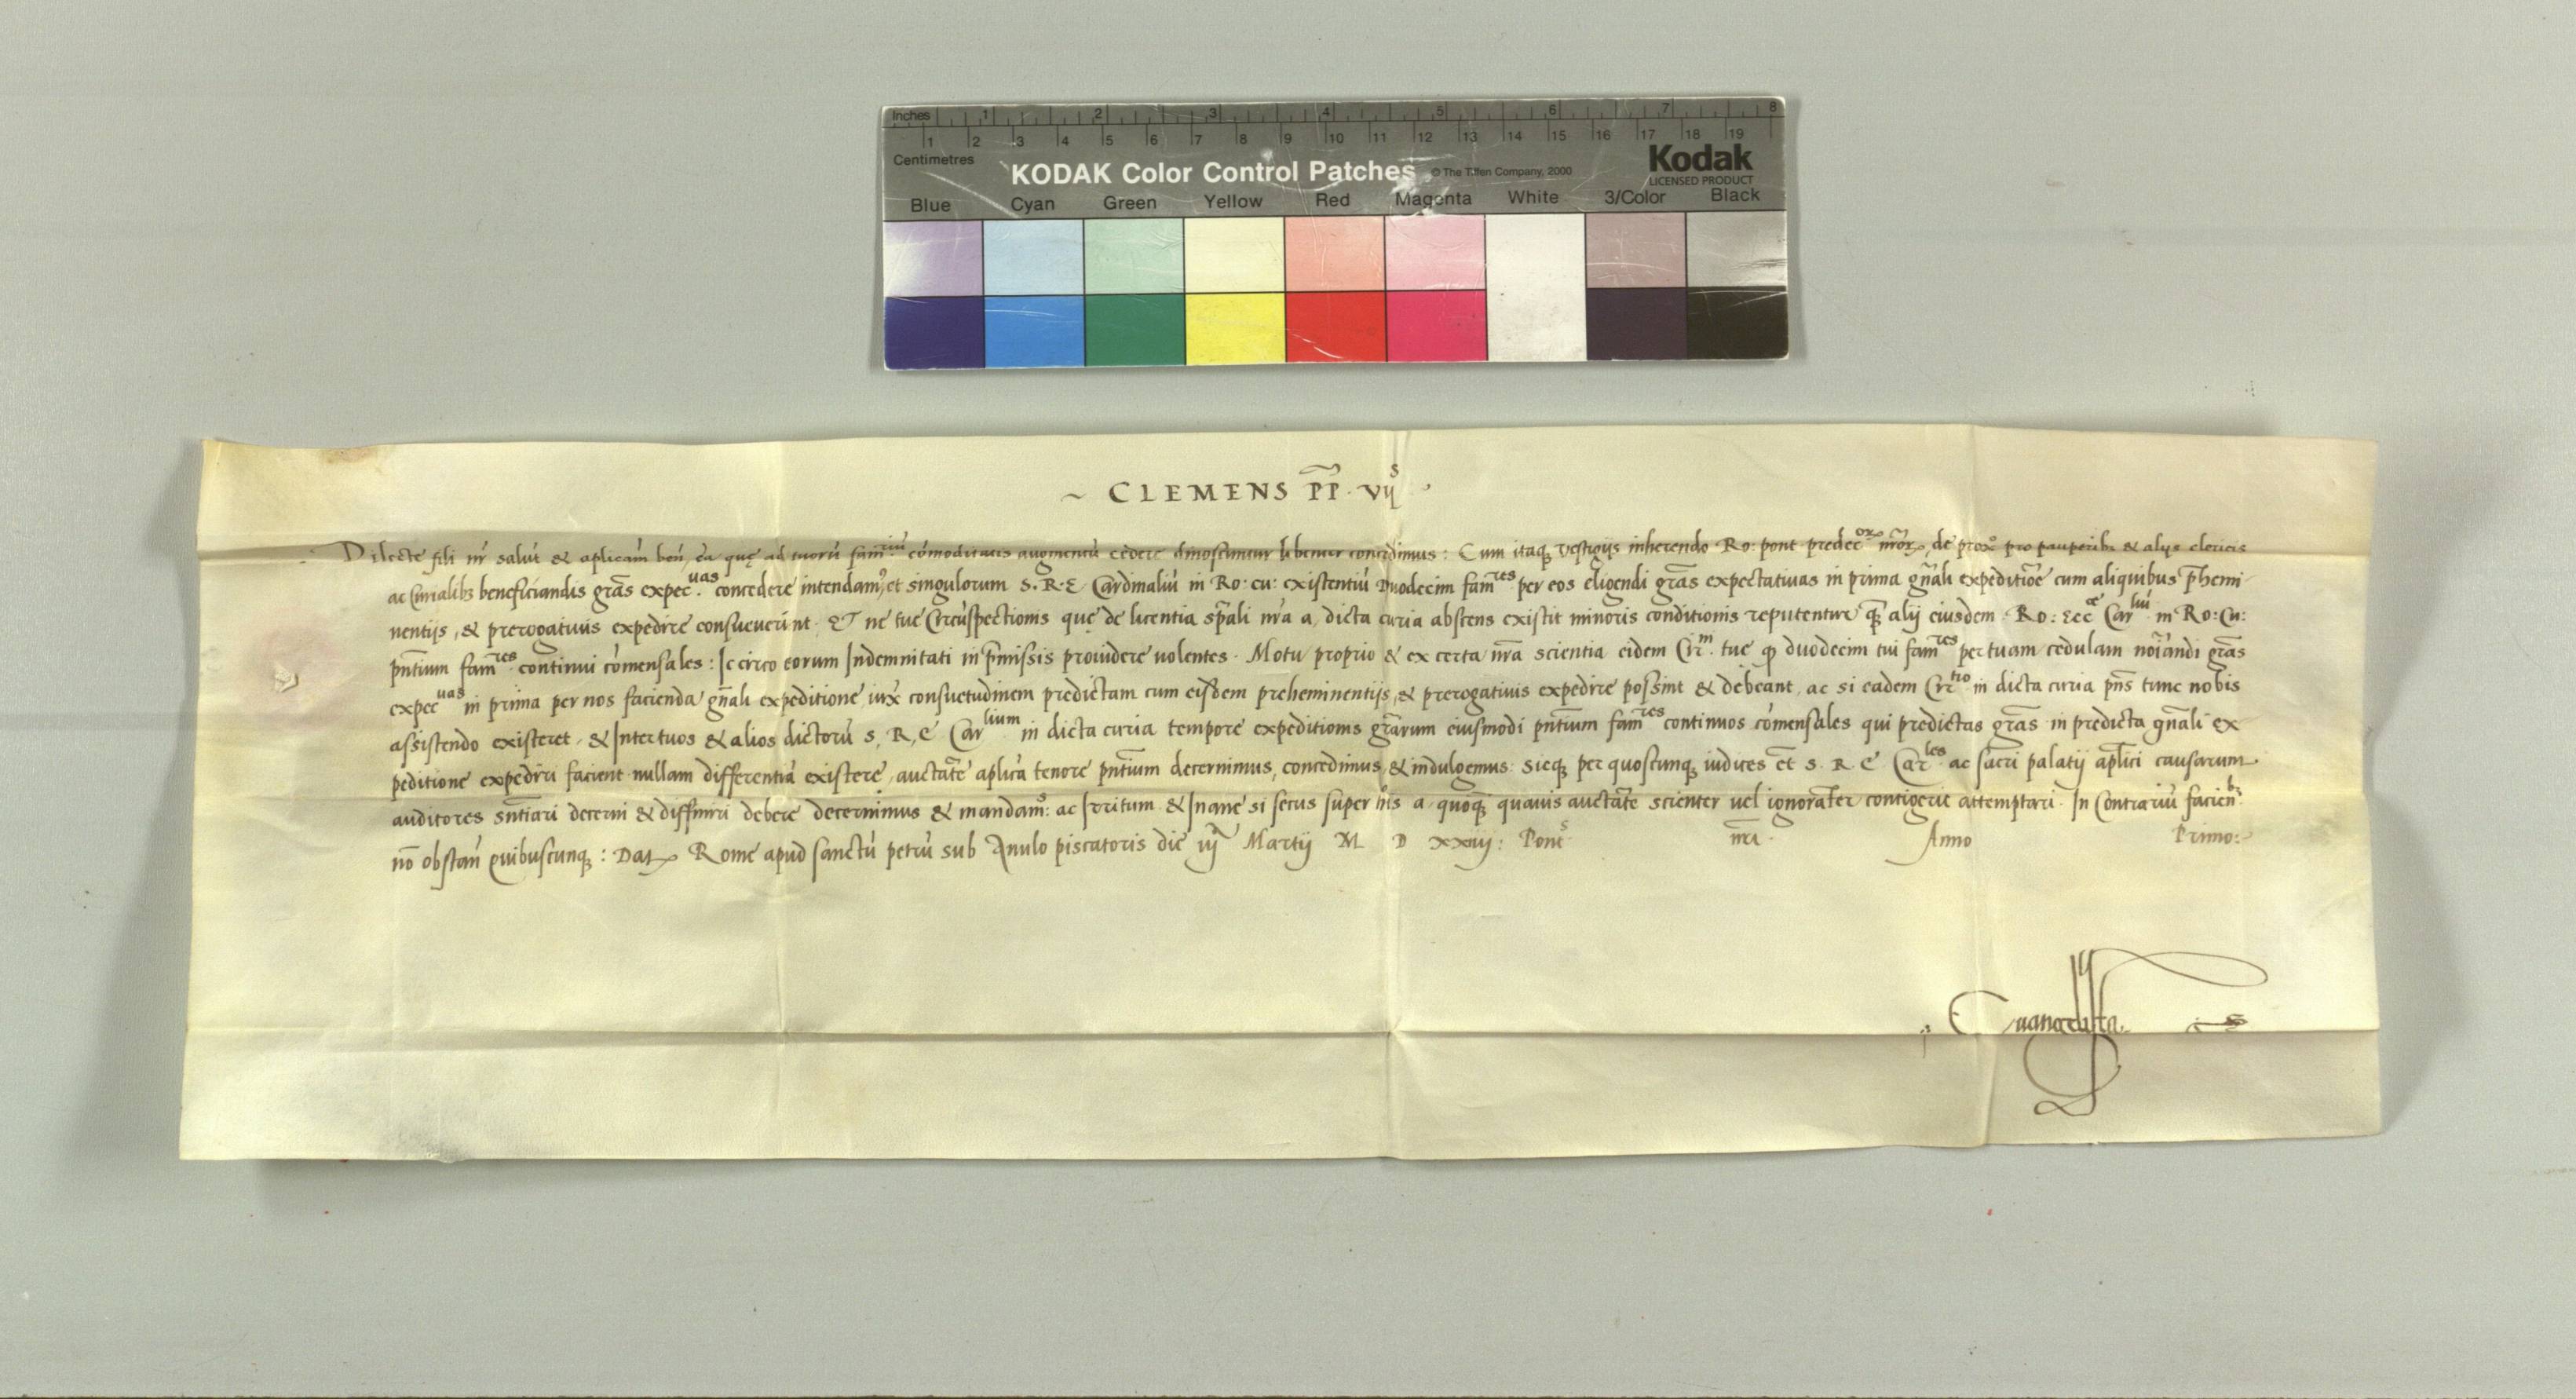 Inches 1 2 3 4 5 6 7 8
1 2 3 4 5 6 7 8 9 10 11 12 13 14 15 16 17 18 19
Centimetres
KODAK Color Control Patches © The Tiffen Company, 2000 Kodak
LICENSED PRODUCT
Blue Cyan Green Yellow Red Magenta White 3/Color Black
~ CLEMENS P̃P̃. VIJˢ
Dilecte fili nr̃ salut̃ & aplicam̃ ben̄, Ea quę ad tuorũ famʳⁱũ cõmoditatis augmentũ cedere dinoscuntur libenter concedimus: Cum itaq̢ vestigijs inherendo Ro: pont predecᵒꝝ nr̃oꝝ, de proxº pro pauperibꝫ & alijs clericis
ac Curialibꝫ beneficiandis gr̃as expecᵘᵃˢ concedere intendam⁹, et singulorum S. R. E Cardinaliũ in Ro. cu: existentiũ Duodecim famʳᵉˢ per eos eligendi gr̃as expectativas in prima gñali expeditiõe cum aliquibus p̃hemi-
nentijs, & prerogativis expedire consueverint. ET ne tue Circũspectionis quę de licentia sp̃ali nr̃a a, dicta curia absens existit minoris conditionis reputentur q̃ꝫ alij eiusdem Ro: Eccᵉ Carˡⁱũ in Ro: Cu:
pñtium famʳᵉˢ continui cõmensales: Iccirco eorum Indemnitati in p̃missis providere volentes. Motu proprio & ex certa nr̃a scientia eidem Cirᵐ. tue ꝙ duodecim tui famʳᵉˢ per tuam cedulam noĩandi gr̃as
expecᵘᵃˢ in prima per nos facienda gñali expeditione iuxᵃ consuetudinem predictam cum eisdem preheminentijs, & prerogativis expedire possint & debeant, ac si eadem Cirᵗⁱᵒ in dicta curia pñs tunc nobis
assistendo existeret. & Inter tuos & alios dictorũ S. R, E Carˡⁱᵘᵐ in dicta curia tempore expeditionis gr̃arum eiusmodi pñtium famʳᵉˢ continuos cõmensales qui predictas gr̃as in predicta gñali ex-
peditione expediri facient nullam differentiã existere, auctãte aplicã tenore pñtium decernimus, concedimus, & indulgemus. Sicq̢ per quoscunq̢ iudices et̃ S. R E Carˡᵉˢ ac sacri palatij ap̃lici causarum
auditores sñtiari decerni & diffiniri debere decernimus & mandam⁹: ac Irritum & Inane si secus super hĩs a quoq̢ quavis auctãte scienter vel ignorãter contigerit attemptari. In Contrariũ facienᵇ
nõ obstan̄ quibuscunq̢: Datꝝ Rome apud sanctũ petrũ sub Anulo piscatoris die iijᵃ Martij M D xxiiij: Pontˢ nr̃i. Anno Primo:
Evangelista